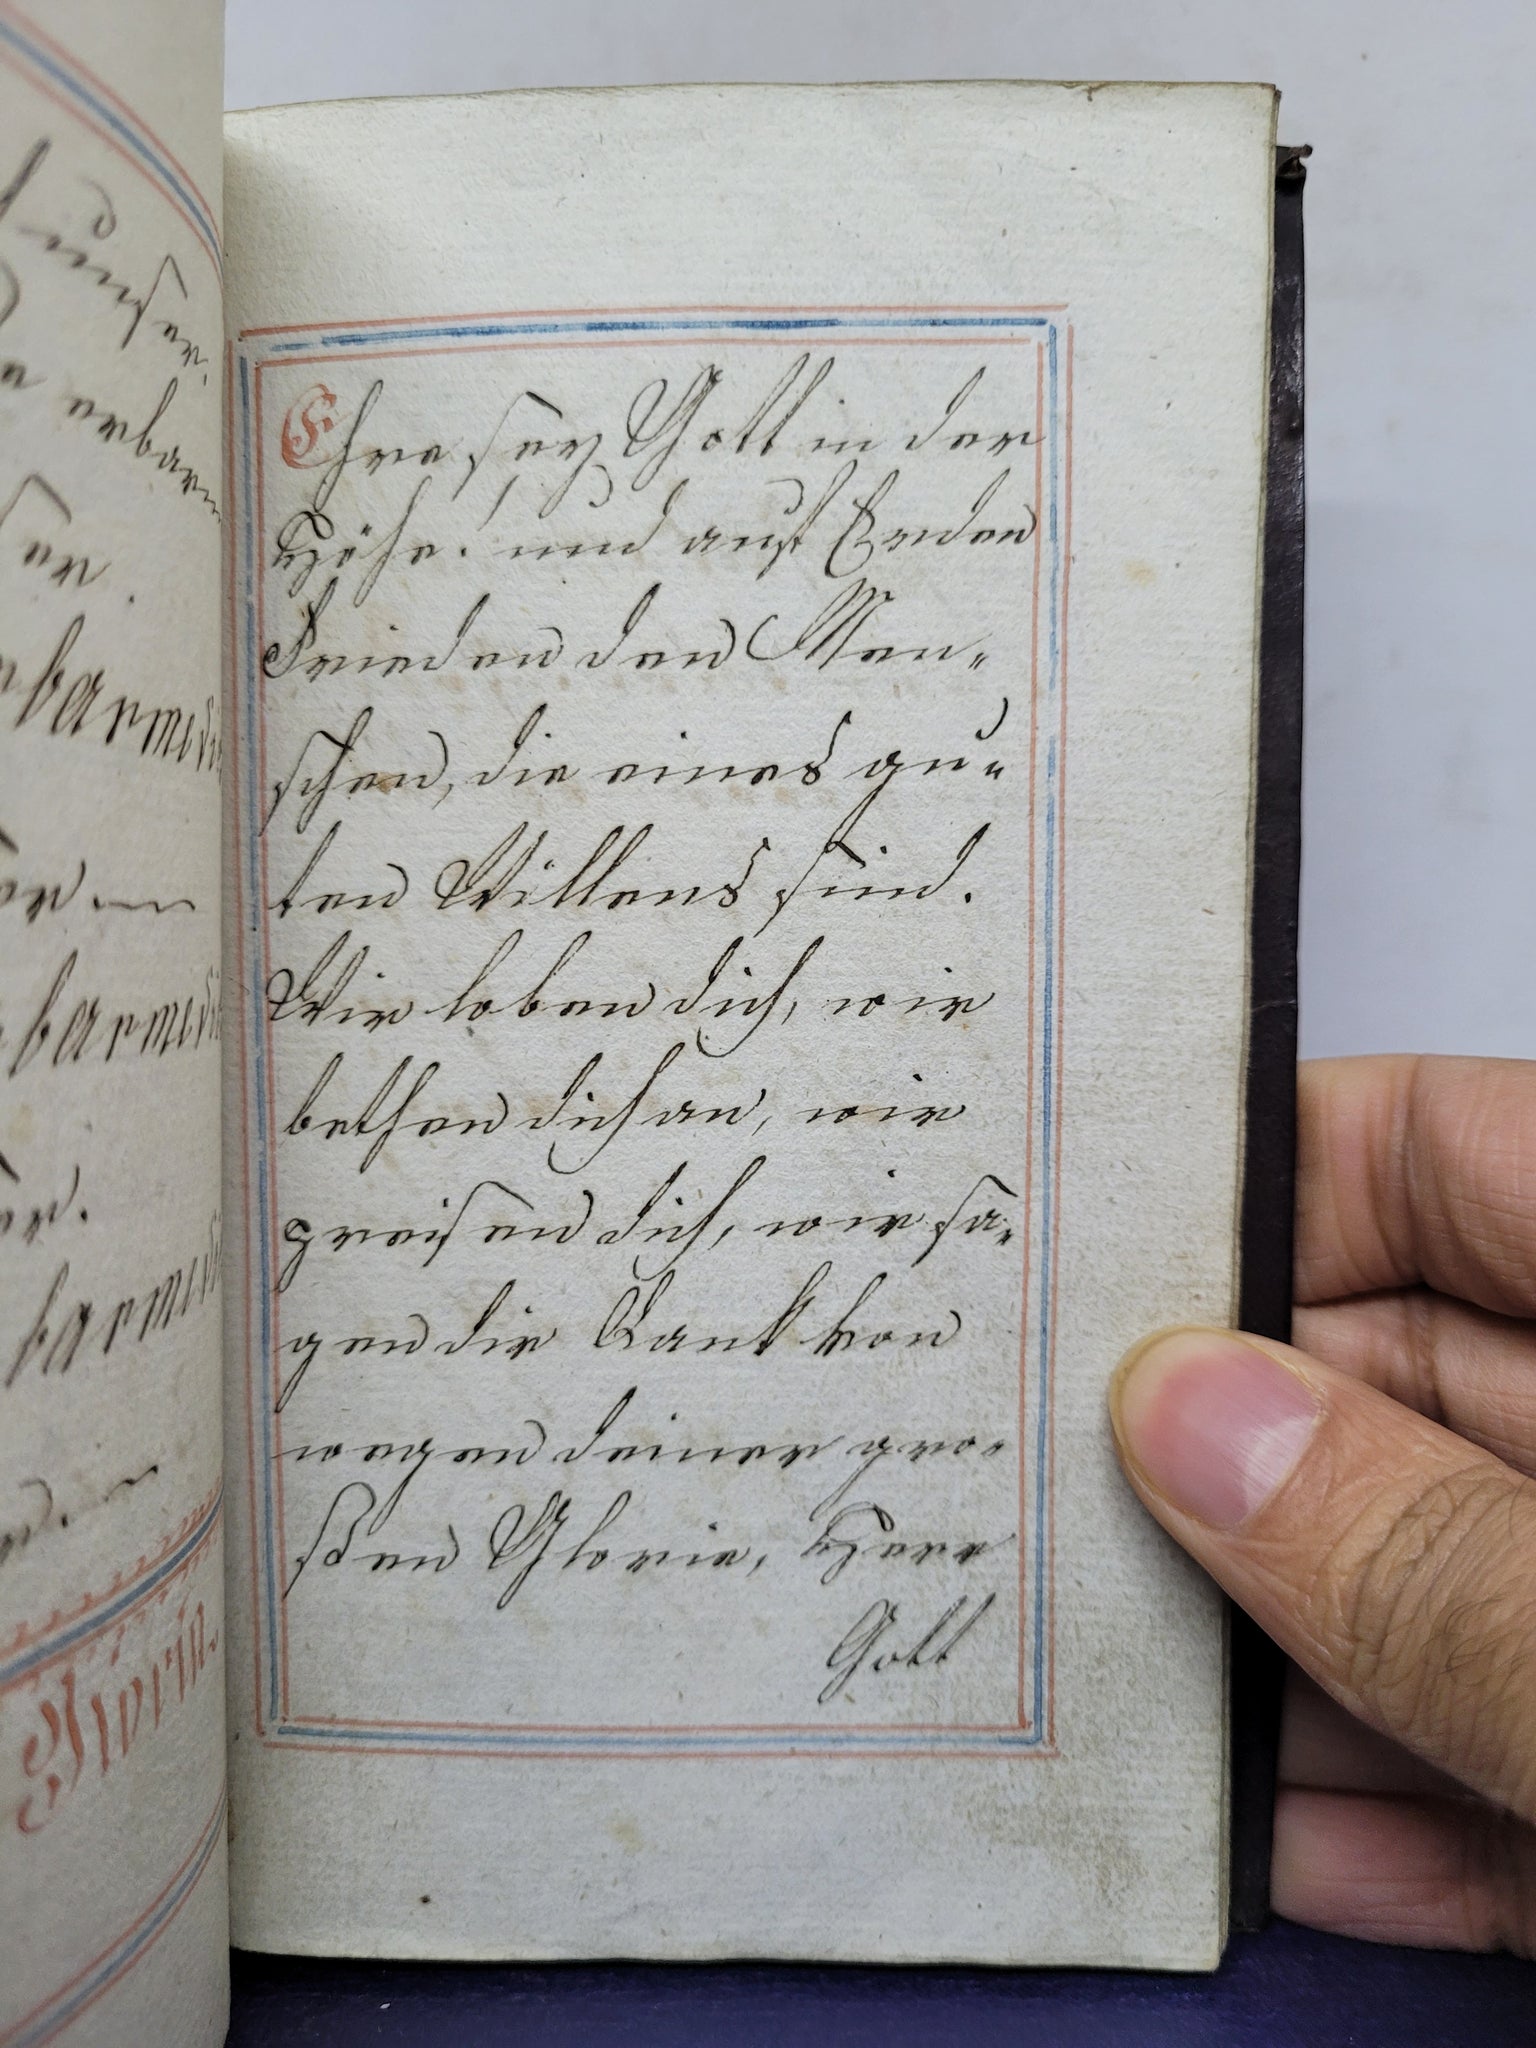 Ehre sey Gott in der
Höhe! und auf Erden
Frieden den Men„
schen, die eines gu„
ten Willens sind.
Wir loben dich, wir
bethen dich an, wir
preisen dich, wir sa„
gen dir Dank von
wegen deiner gro„
ßen Glorie, Herr
Gott
Gloria.